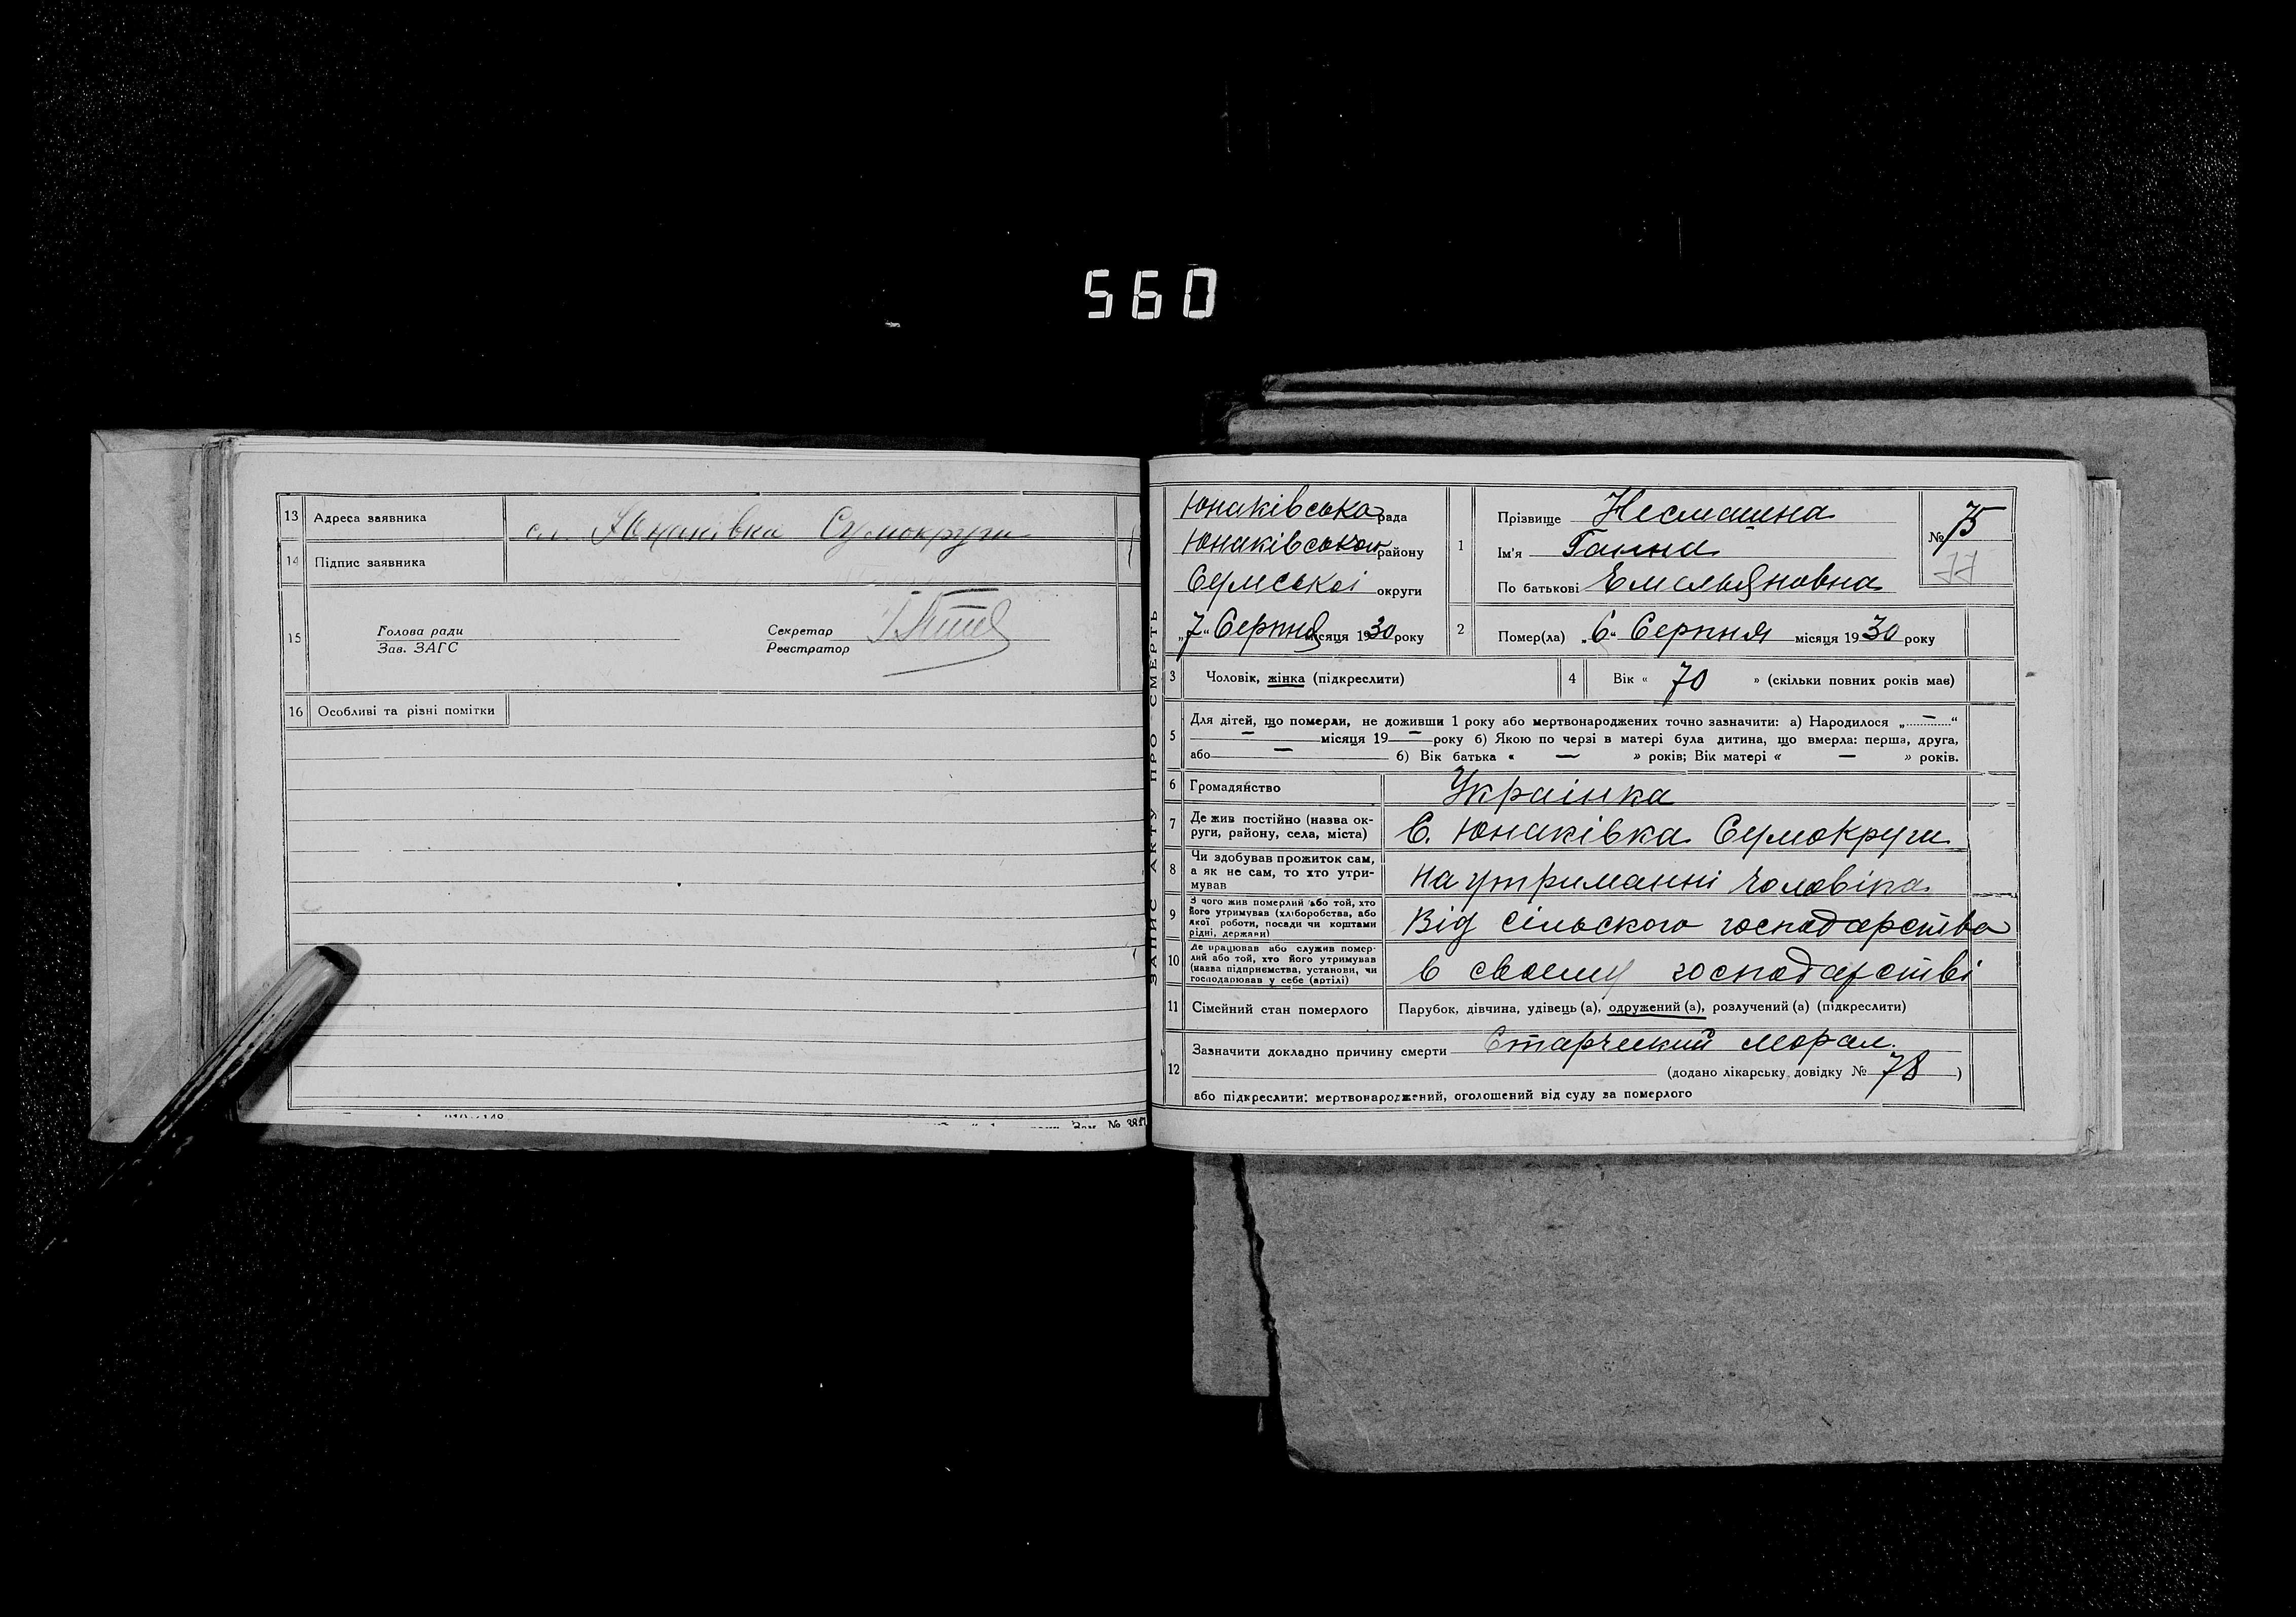 560
13 Адреса заявника сл. Юнаківка Сумокруги
14 Підпис заявника
15 Голова ради
Зав. ЗАГС
Секретар
Реєстратор
16 Особливі та різні помітки
ЗАПИС АКТУ ПРО СМЕРТЬ
Юнаківська рада
Юнаківського району
Сумської округи
„7“ Серпня місяця 1930 року
1 Прізвище Несмашна
Ім'я Ганна
По батькові Емельяновна
№ 75
77
2 Помер(ла) „6“ Серпня місяця 1930 року
3 Чоловік, жінка (підкреслити)
4 Вік « 70 » (скільки повних років має)
5 Для дітей, що померли, не доживши 1 року або мертвонароджених точно зазначити: а) Народилося „ — “
— місяця 19 — року б) Якою по черзі в матері була дитина, що вмерла: перша, друга,
або — б) Вік батька « — » років; Вік матері « — » років.
6 Громадянство Украінка
7 Де жив постійно (назва округи, району, села, міста) С. Юнаківка Сумокруги
8 Чи здобував прожиток сам,
а як не сам, то хто утримував
На утриманні чоловіка
9 З чого жив померлий або той, хто
його утримував (хліборобства, або
якої роботи, посади чи коштами
рідні, держави)
Від сільского господарства
10 Де працював або служив померлий або той, хто його утримував
(назва підприємства, установи, чи
господарював у себе (артілі)
в своему господарстві
11 Сімейний стан померлого Парубок, дівчина, удівець (а), одружений (а), розлучений (а) (підкреслити)
12 Зазначити докладно причину смерти Старческий морал.
(додано лікарську довідку № 78 )
або підкреслити: мертвонароджений, оголошений від суду за померлого